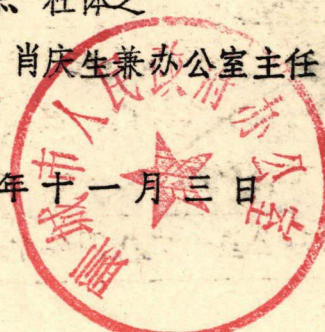 杜体之
肖庆生兼办公室主任
年十一月三日
聊城市人民政府办公室